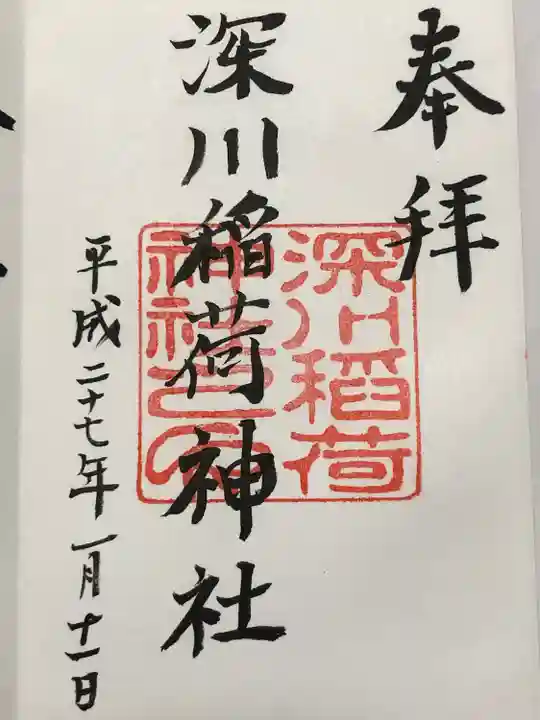 奉拝
深川稲荷
神社之印
深川稲荷神社
平成二十七年一月十一日